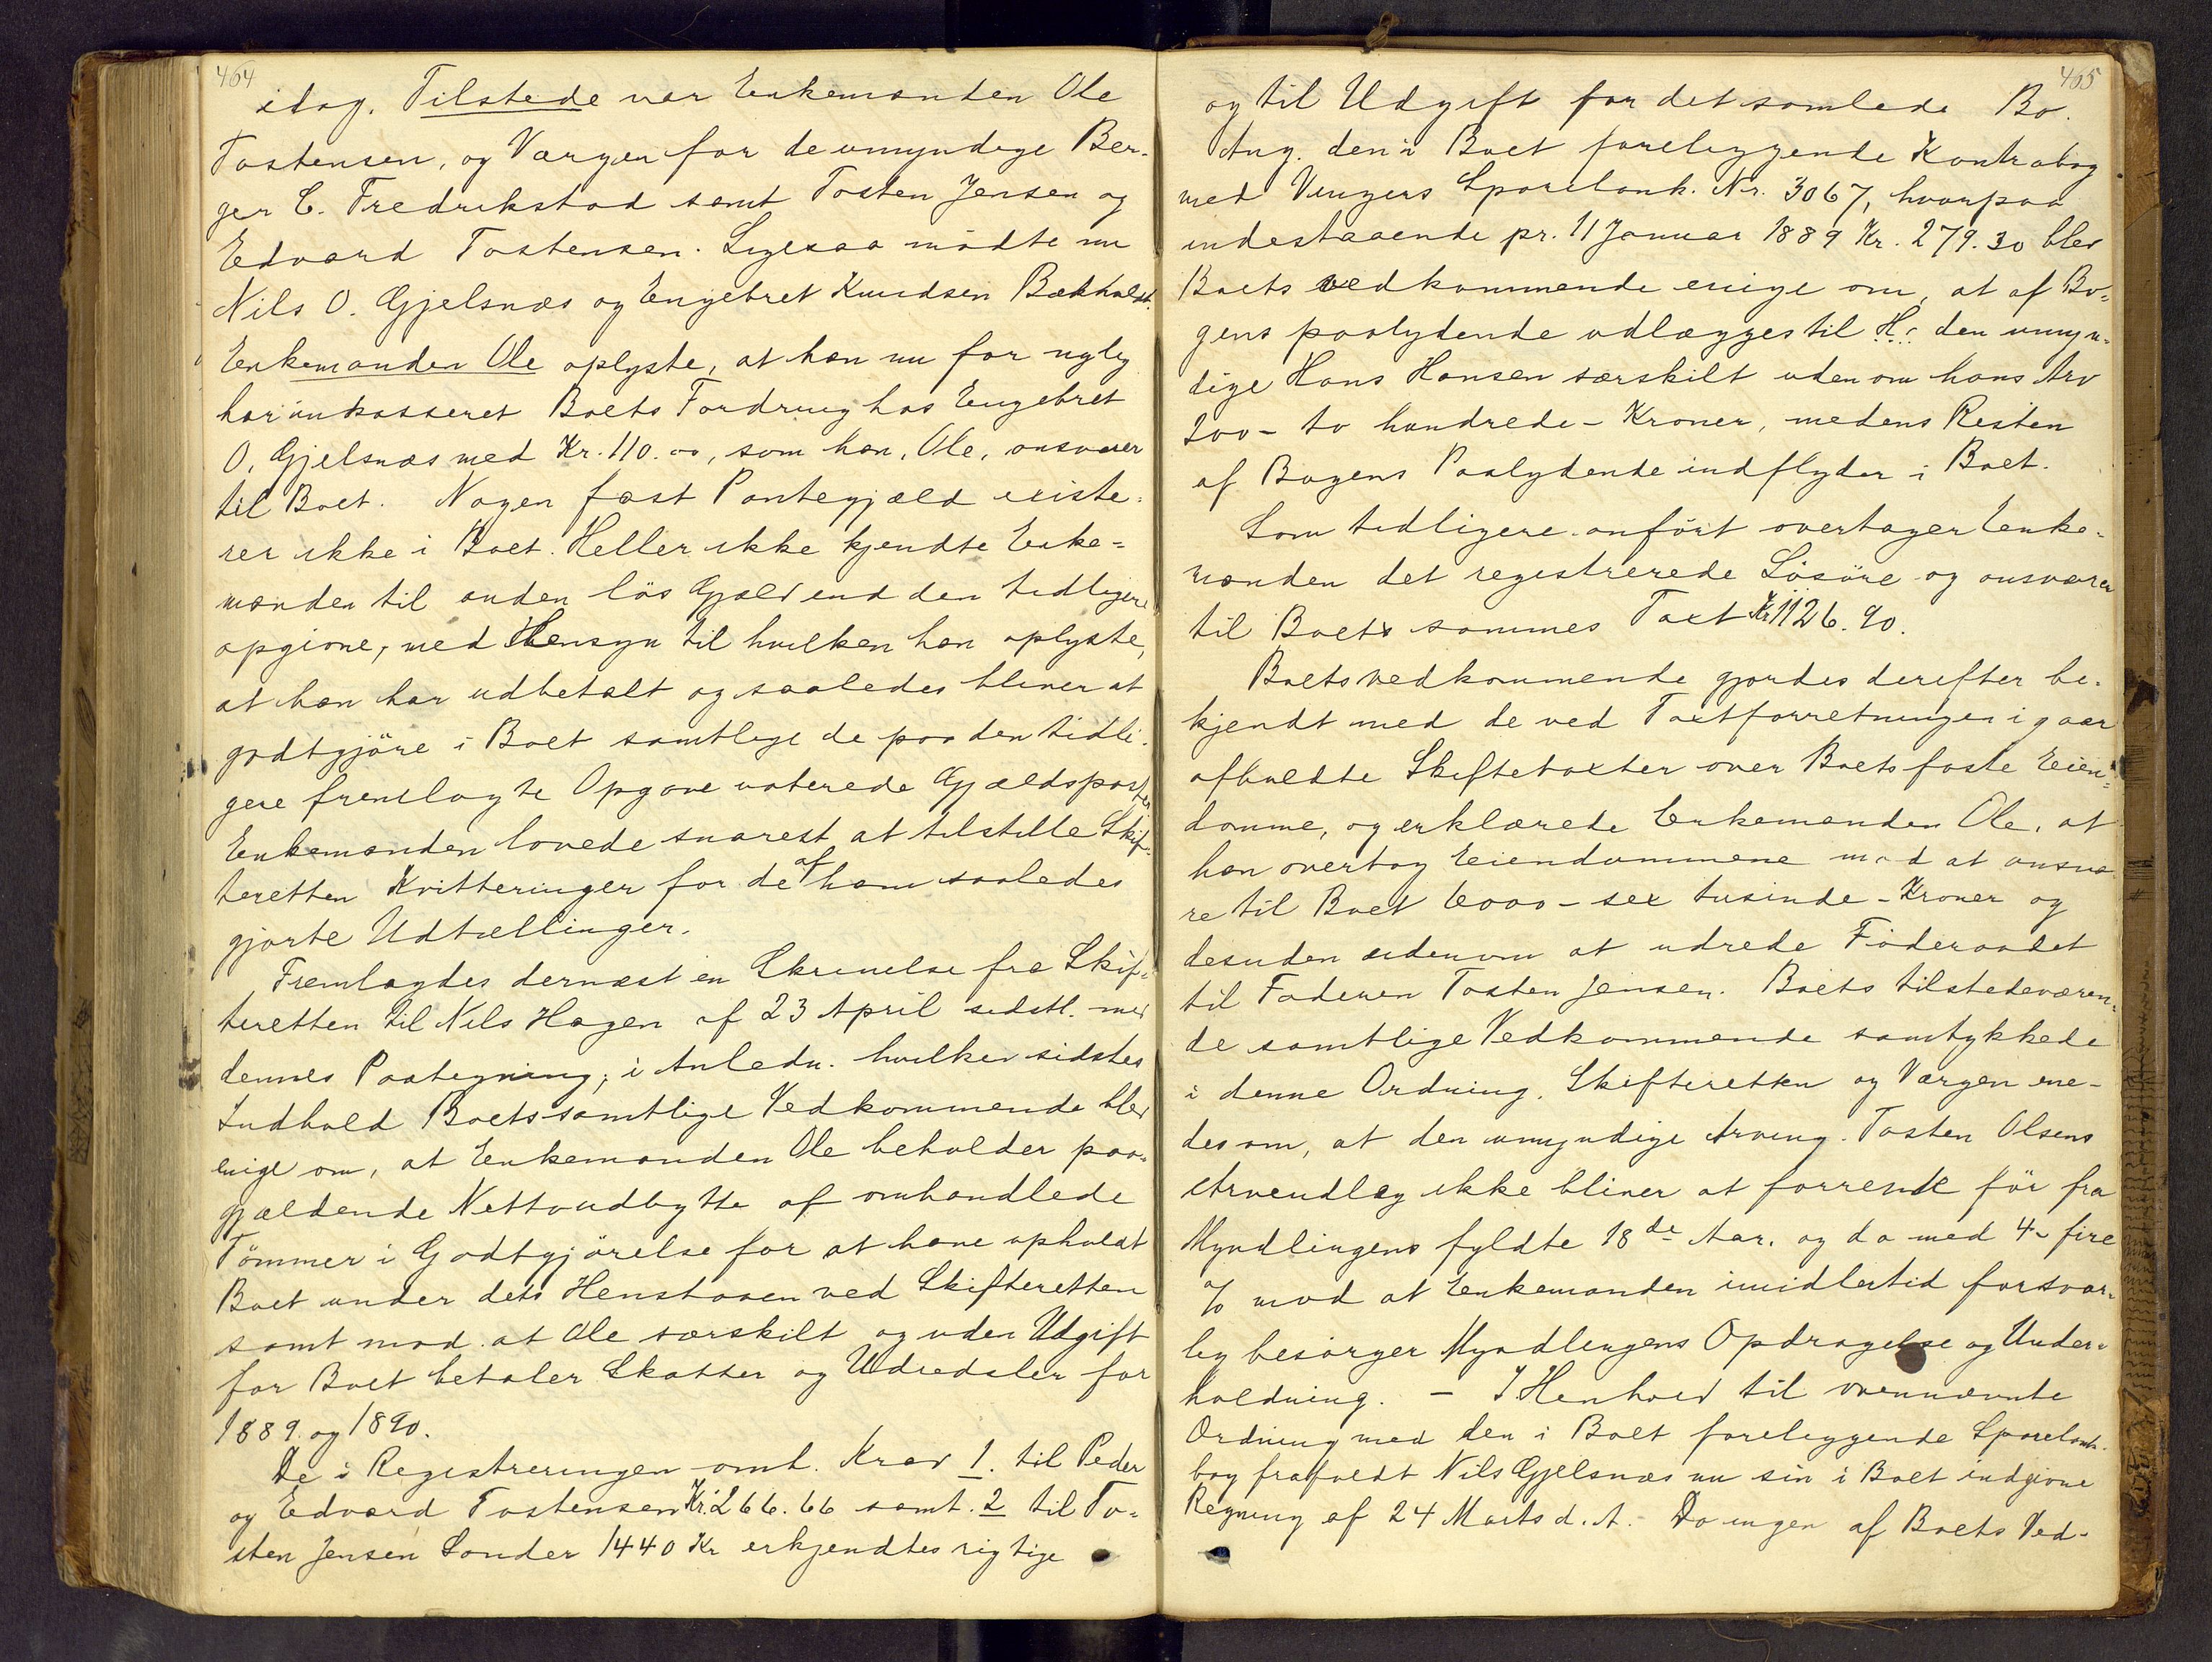 464
idag. Tilstede var Enkemanden Ole
Tostensen, og Værgen for de umyndige Ber-
ger E. Fredrikstad samt Tosten Jensen og
Edvard Tostensen. Ligesaa mødte nu
Nils O. Gjelsnæs og Engebret Knudsen Bækholdt.
Enkemanden Ole oplyste, at han nu for nylig
har inkasseret Boets Fordring hos Engebret
O. Gjelsnæs med Kr. 110.00, som han, Ole, ansvarer
til Boet. Nogen fast Pantegjæld existe-
rer ikke i Boet. Heller ikke kjendte Enke=
manden til anden løs Gjæld end den tidligere
opgivne, med Hensyn til hvilken han oplyste,
at han har udbetalt og saaledes bliver at
godtgjöre i Boet samtlige de paa den tidli-
gere fremlagte Opgave noterede Gjældsposter
Enkemanden lovede snarest at tilstille Skif-
teretten Kvitteringer for de af ham saaledes
gjorte Udtællinger.
Fremlagdes dernæst en Skrivelse fra Skif-
teretten til Nils Hagen af 23 April sidstl. med
dennes Paategning; i Anledn. hvilken sidstes
Indhold Boets samtlige Vedkommende blev
enige om, at Enkemanden Ole beholder paa-
gjældende Nettoudbytte af omhandlede
Tömmer i Godtgjörelse for at have opholdt
Boet under dets Henstaaen ved Skifteretten
samt mod at Ole særskilt og uden Udgift
for Boet betaler Skatter og Udredsler for
1889 og 1890.
De i Registreringen omh. Krav 1. til Peder
og Edvard Tostensen Kr. 266.66 samt 2 til To-
sten Jensen Sønder 1440 Kr erkjendtes rigtige
405
og til Udgift for det samlede Bo.
Ang. den i Boet foreliggende Kontrabog
med Vingers Sparebank Nr. 3067, hvorpaa
indestaaende pr. 11 Januar 1889 Kr. 279.30 blev
Boets vedkommende enige om, at af Bo-
gens paalydende udlægges til den umyn-
dige Hans Hansen særskilt uden om hans Arv
200 - to hundrede - Kroner, medens Resten
af Bogens Paalydende indflyder i Boet.
Som tidligere anført overtager Enke-
manden det registrerede Lösöre og ansvarer
til Boets sammes Taxt Kr 1126.90.
Boets vedkommende gjordes derefter be-
kjendt med de ved Taxtforretningen igaar
afholdte Skiftetaxter over Boets faste Eien-
domme, og erklærede Enkemanden Ole, at
han overtog Eiendommene mod at ansva-
re til Boet 6000 - sex tusinde - Kroner og
desuden udenom at udrede Föderaadet
til Faderen Tosten Jensen. Boets tilstedeværen-
de samtlige Vedkommende samtykkede
i denne Ordning. Skifteretten og Værgen ene-
des om, at den umyndige Arving Tosten Olsens
Arvendlæg ikke bliver at forrente för fra
Myndlingens fyldte 18de Aar. og da med 4 - fire
% mod at Enkemanden imidlertid forsvar-
lig besörger Myndlingens Opdragelse og Under-
holdning. - I Henhold til ovennævnte
Ordning med den i Boet foreliggende Sparebank-
bog frafaldt Nils Gjelsnæs nu sin i Boet indgivne
Regning af 24 Marts d. A. - Da ingen af Boets Ved-